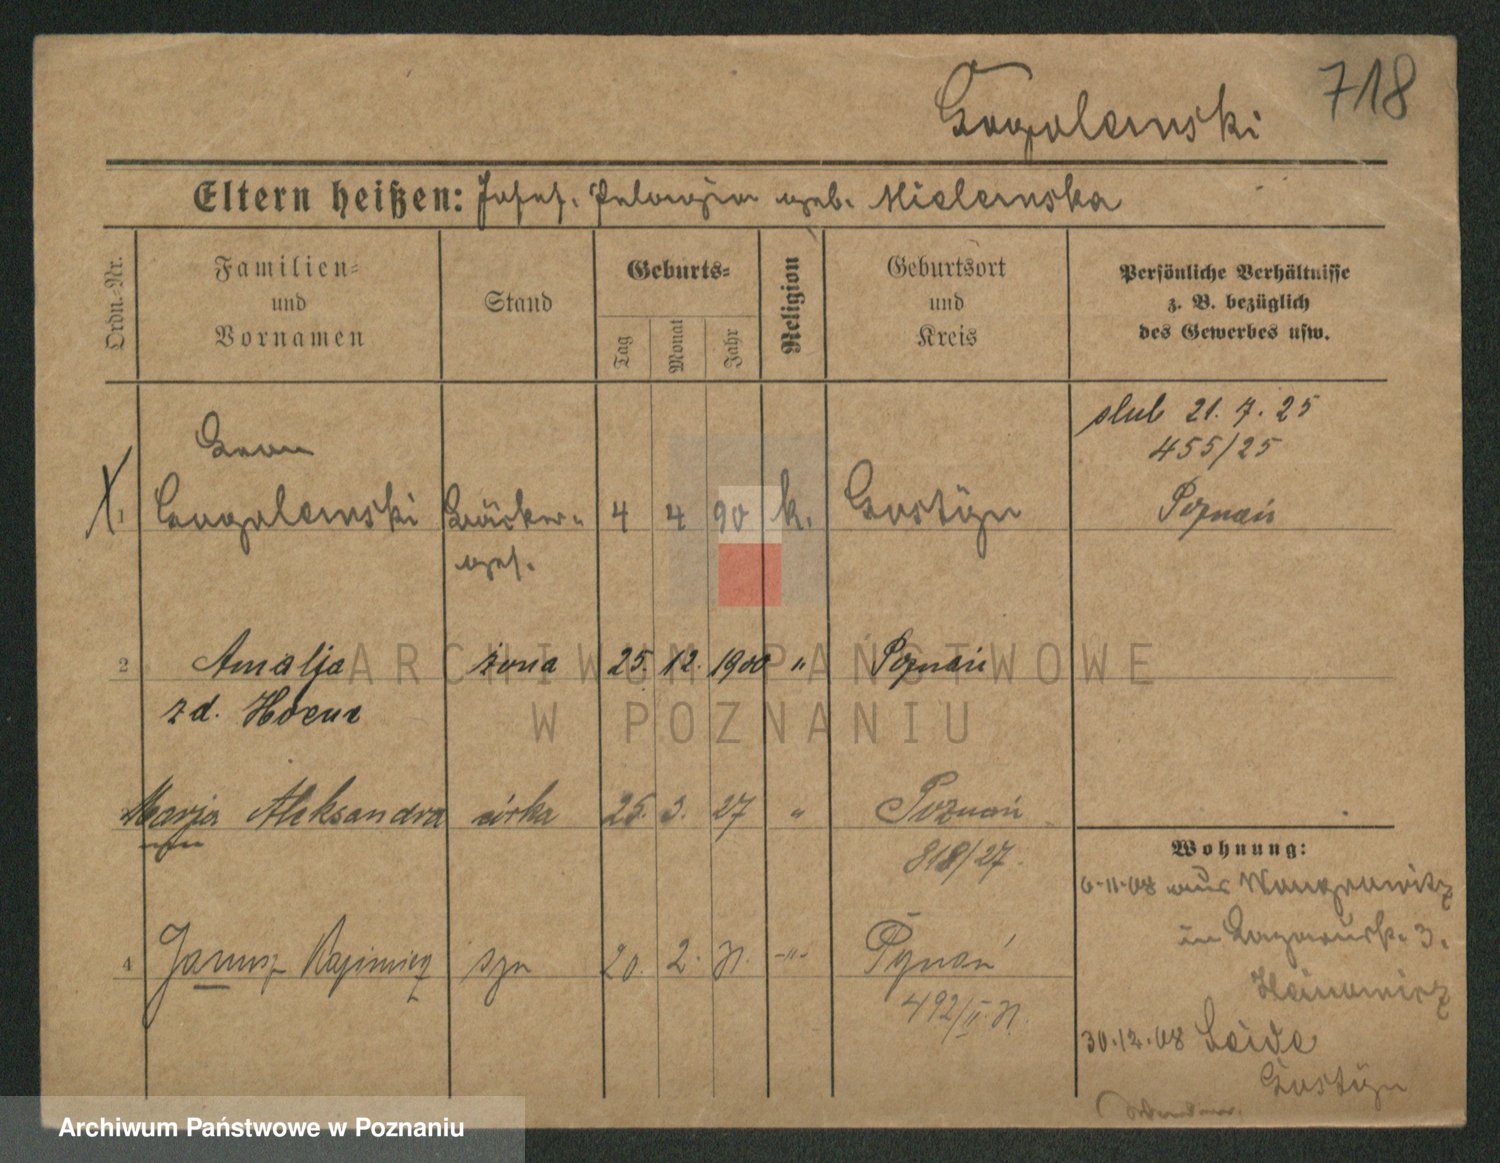 718
Gogolewski
Eltern heißen: Josef. Pelagia geb. Mielewska
Ordn.-Nr.
Familien- und Vornamen
Stand
Geburts-
Tag
Monat
Jahr
Religion
Geburtsort und Kreis
Persönliche Verhältnisse z. B. bezüglich des Gewerbes usw.
ślub 21. 7. 25
455/25
Poznań
Leon
1 Gogolewski Bäcker- 4 4 90 k. Gostÿn
ges.
2 Amalja żona 25. 12. 1900 " Poznań
z d.
3 Marja Aleksandra córka 25. 3. 27 " Poznań
818/27.
4 Janusz Kazimierz syn 20. 2. 31. -"- Poznań
492/II. 31.
Wohnung:
6.11.08 aus Wongrowitz
in 3.
30.12.08 beide
Gostÿn
ARCHIWUM PAŃSTWOWE
W POZNANIU
Archiwum Państwowe w Poznaniu